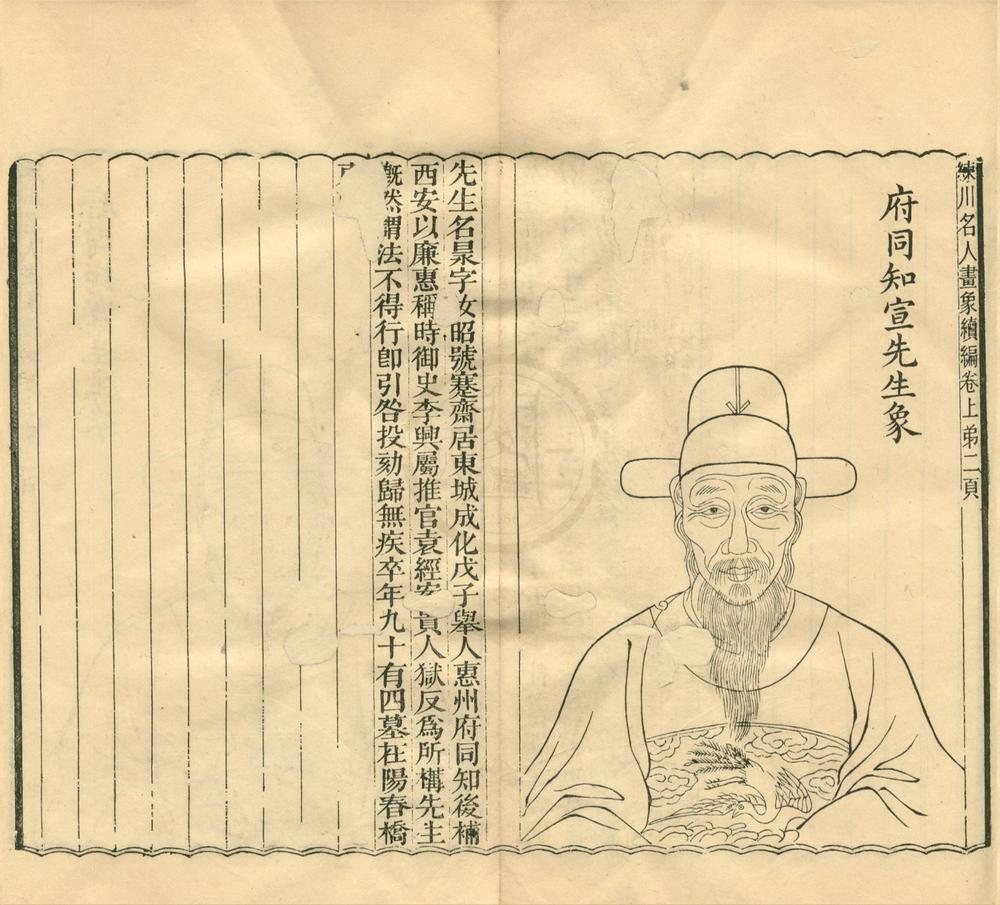 練川名人畫象續編卷上弟二頁
府同知宣先生象
先生名昊字汝昭號蹇齋居東城成化戊子舉人惠州府同知後補
西安以廉惠稱時御史李興屬推官袁經案 貢人獄反爲所構先生
慨然謂法不得行卽引咎投劾歸無疾卒年九十有四墓在陽春橋